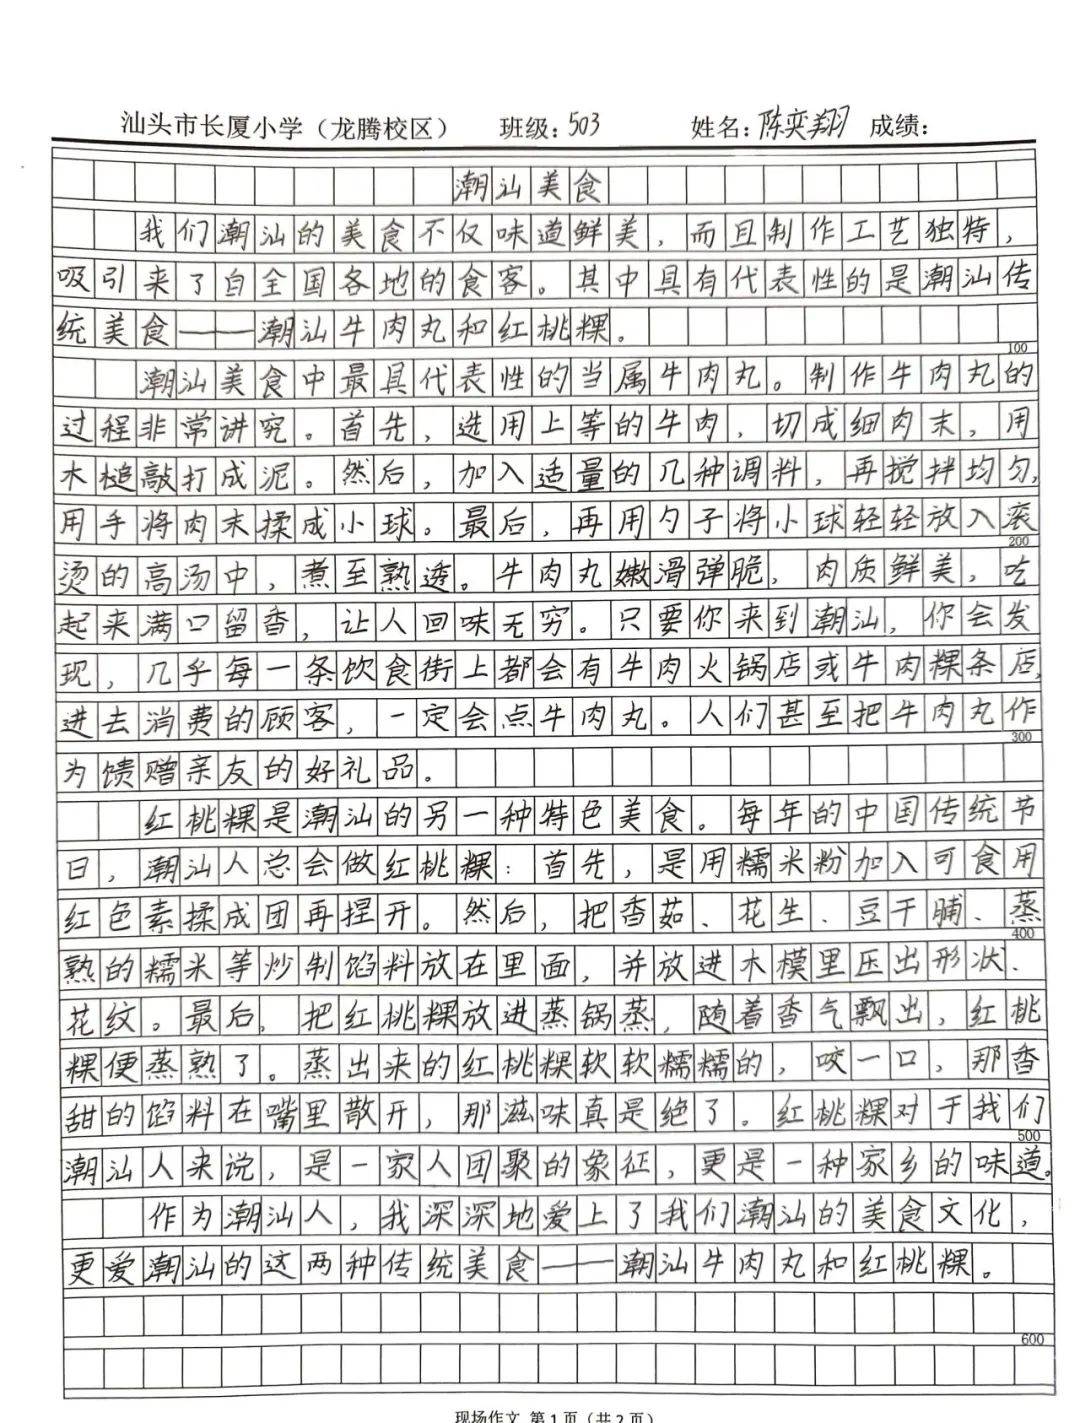 汕头市长厦小学（龙腾校区） 班级：503 姓名：陈奕翔 成绩：
潮汕美食
我们潮汕的美食不仅味道鲜美，而且制作工艺独特，
吸引来了自全国各地的食客。其中具有代表性的是潮汕传
统美食——潮汕牛肉丸和红桃粿。
100
潮汕美食中最具代表性的当属牛肉丸。制作牛肉丸的
过程非常讲究。首先，选用上等的牛肉，切成细肉末，用
木槌敲打成泥。然后，加入适量的几种调料，再搅拌均匀，
用手将肉末揉成小球。最后，再用勺子将小球轻轻放入滚
200
烫的高汤中，煮至熟透。牛肉丸嫩滑弹脆，肉质鲜美，吃
起来满口留香，让人回味无穷。只要你来到潮汕，你会发
现，几乎每一条饮食街上都会有牛肉火锅店或牛肉粿条店，
进去消费的顾客，一定会点牛肉丸。人们甚至把牛肉丸作
300
为馈赠亲友的好礼品。
红桃粿是潮汕的另一种特色美食。每年的中国传统节
日，潮汕人总会做红桃粿：首先，是用糯米粉加入可食用
红色素揉成团再捏开。然后，把香茹、花生、豆干脯、蒸
400
熟的糯米等炒制馅料放在里面，并放进木模里压出形状、
花纹。最后，把红桃粿放进蒸锅蒸，随着香气飘出，红桃
粿便蒸熟了。蒸出来的红桃粿软软糯糯的，咬一口，那香
甜的馅料在嘴里散开，那滋味真是绝了。红桃粿对于我们
500
潮汕人来说，是一家人团聚的象征，更是一种家乡的味道。
作为潮汕人，我深深地爱上了我们潮汕的美食文化，
更爱潮汕的这两种传统美食——潮汕牛肉丸和红桃粿。
600
现场作文 第1页（共2页）